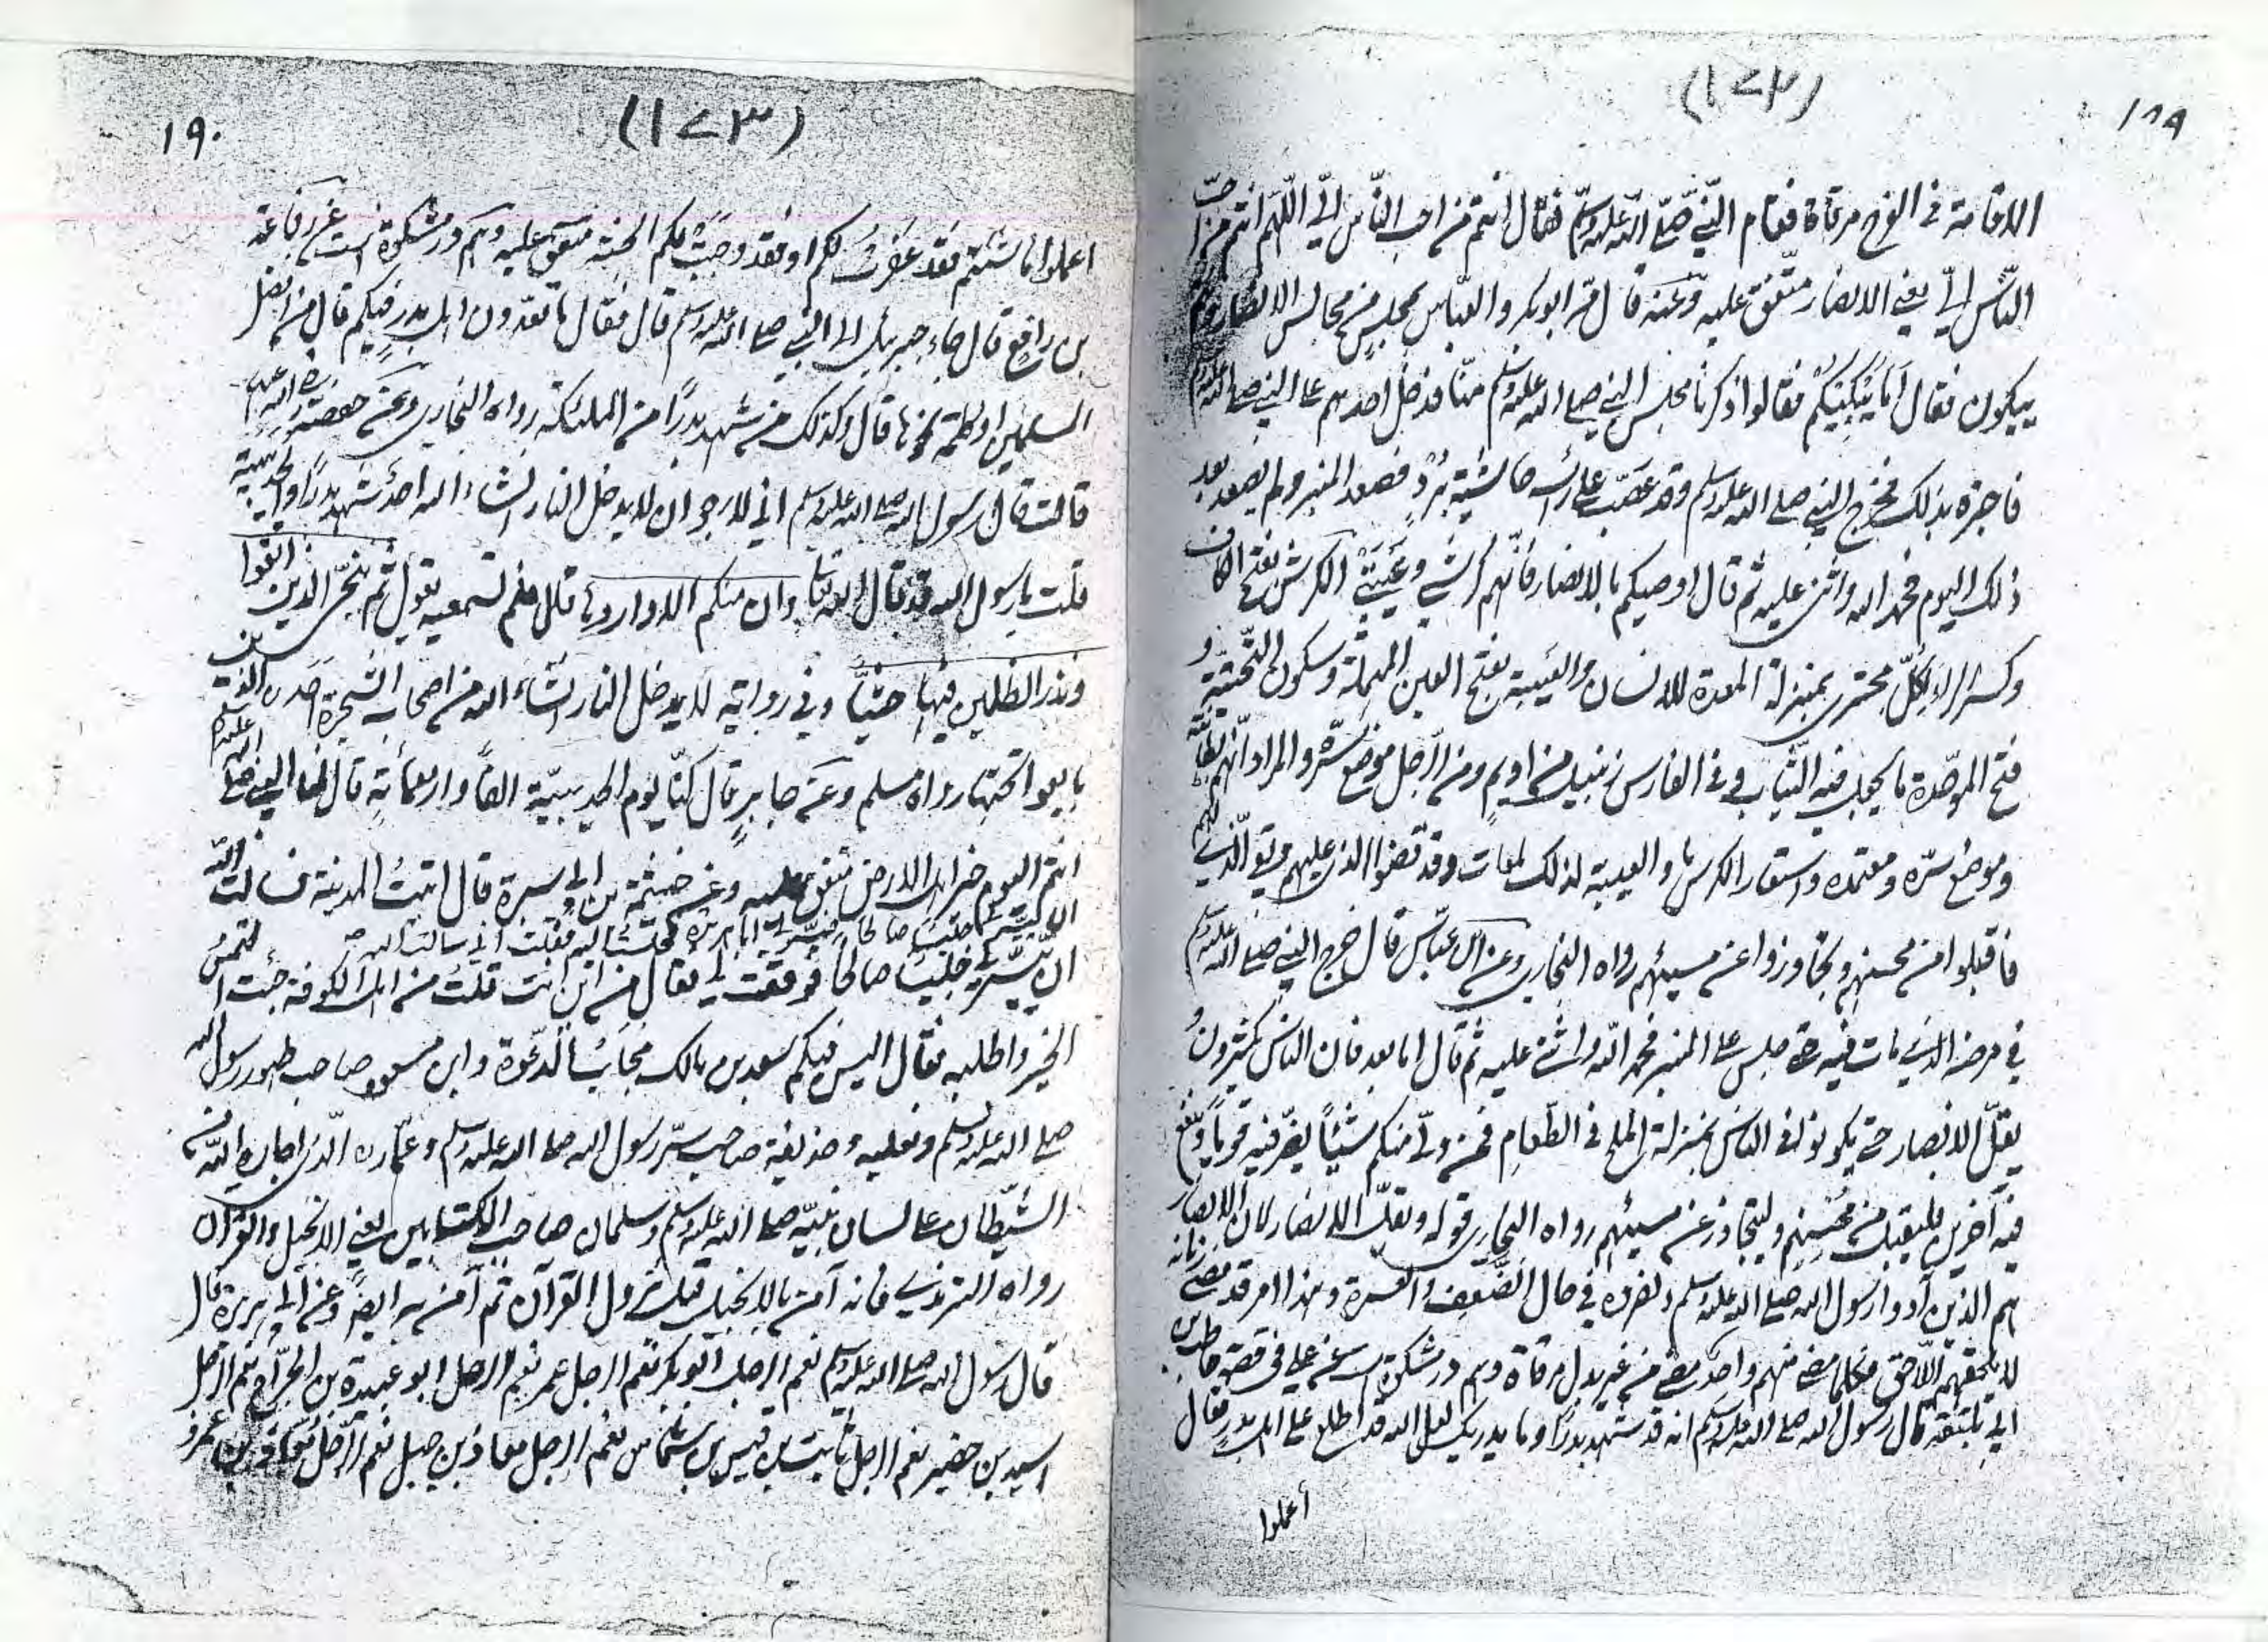 ١٨٩
(١٧٢)
الاقامة فى الفرح مرقاة فقام النّبىّ صلّى الله عليه وسلّم فقال انتم من احب النّاس الىّ اللّهمّ انتم من احبّ
النّاس الىّ يعنى الانصار متّفق عليه وعنه قال مرّ ابو بكر والعبّاس بمجلس من مجالس الانصار وهم
يبكون فقال اما يُبْكِيْكُمْ فقالوا ذكرنا مجلس النبى صلى الله عليه وسلم منّا فدخل احدهم على النبى صلى الله عليه وسلم
فاخبره بذلك فخرج النبى صلى الله عليه وسلم وقد عَصّب على رأسه حاشية بُرْدٍ فصعد المنبر ولم يصعد بعد
ذلك اليوم فحمد الله واثنى عليه ثم قال اوصيكم بالانصار فانّهم كرشى وعَيْبَتِى الكرش بفتح الكاف
وكسر الراء لكلّ مجترّ بمنزلة المعدة للانسان والعَيبة بفتح العين المهملة وسكون التّحتيّة و
فتح الموحّدة ما يجعل فيه الثّياب وفى الفارس زنبيل من اديم ومن الرّجل موضع سرّه والمراد انّهم بطانته
وموضع سرّه ومعتمده واستعار الكرش والعيبة لذلك لمعات وقد قضوا الذى عليهم وبقى الّذى لهم
فاقبلوا من محسنهم وتجاوزوا عن مسيئهم رواه البخارى وعن ابن عبّاس قال خرج النبى صلى الله عليه وسلم
فى مرضه الذى مات فيه حتى جلس على المنبر فحمد الله واثنى عليه ثم قال اما بعد فان الناس يكثرون و
يقلّ الانصار حتى يكونوا فى الناس بمنزلة الملح فى الطّعام فمن ولّى منكم شيئًا يضرّ فيه قومًا وينفع
فيه آخرين فليقبل من مُحْسِنِهم وليتجاوز عن مسيئهم رواه البخارى قوله ويقلّ الانصار لان الانصار
هم الذين آووا رسول الله صلى الله عليه وسلم ونصروه فى حال الضّعف والعسرة وهذا امر قد مضى زمانه
لا يلحقهم اللّاحق فكلما مضى منهم واحد مضى من غير بدل مرقاة وهم در مشكوة است عن على فى قصة حاطب بن
ابى بلتعة قال رسول الله صلى الله عليه وسلم انه قد شهد بدرًا وما يدريك لعل الله قد اطلع على اهل بدر فقال
اعملوا
١٩٠
(١٧٣)
اعملوا ما شئتم فقد غفرت لكم او فقد وجبت لكم الجنة متفق عليه وهم در مشكوة است عن رفاعة
بن رافع قال جاء جبرئيل الى النبى صلى الله عليه وسلم قال فقال ما تعدّون اهل بدر فيكم قال من افضل
المسلمين او كلمة نحوها قال وكذلك من شهد بدرًا من الملئكة رواه البخارى وعن حفصة رضى الله عنها
قالت قال رسول الله صلى الله عليه وسلم انى لارجو ان لا يدخل النار انشاء الله احدٌ شهد بدرًا والحديبية
قلت يا رسول الله قد قال الله تعالى وان منكم الا واردها قال فلم تسمعيه يقول ثم ننجّى الذين اتقوا
ونذر الظلمين فيها جثيّا وفى رواية لا يدخل النار انشاء الله من اصحاب الشجرة احد من الذين
بايعوا تحتها رواه مسلم وعن جابر قال كنّا يوم الحديبيّة الفًا واربعمائةٍ قال لنا النبى صلى الله عليه وسلم
انتم اليوم خير اهل الارض متفق عليه وعن خيثمة بن ابى سبرة قال اتيتُ المدينة فسالت الله
ان ييسّر لى جليسا صالحا فيسّر لى ابا هريرة فجلست اليه فقلت انى سالت الله
ان ييسّر لى جليسًا صالحًا فوفقت لى فقال من اين انت قلتُ من اهل الكوفة جئت التمس
الخير واطلبه فقال اليس فيكم سعد بن مالك مجابُ الدّعوة وابن مسعود صاحب طهور رسول الله
صلى الله عليه وسلم ونعليه وحذيفة صاحب سرّ رسول الله صلى الله عليه وسلم وعمّار الّذى اجاره الله من
الشّيطان على لسان نبيّه صلى الله عليه وسلم وسلمان صاحب الكتابين يعنى الانجيل والقرآن
رواه الترمذى فانه آمن بالانجيل قبل نزول القرآن ثم آمن به ايضًا وعن ابى هريرة قال
قال رسول الله صلى الله عليه وسلم نعم الرجل ابو بكر نعم الرجل عمر نعم الرجل ابو عبيدة بن الجرّاح نعم الرجل
اسيد بن حضير نعم الرجل ثابت بن قيس بن شماس نعم الرجل معاذ بن جبل نعم الرّجل معاذ بن عمرو